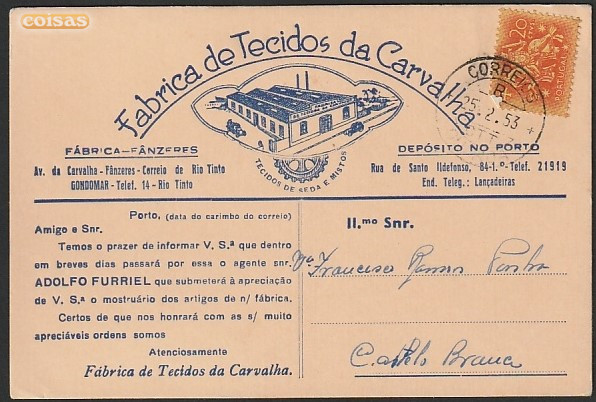 coisas
Fabrica de Tecidos da Carvalha
TECIDOS DE SEDA E MISTOS
FÁBRICA-FÂNZERES
Av. da Carvalha - Fânzeres - Correio de Rio Tinto
GONDOMAR - Telef. 14 - Rio Tinto
DEPÓSITO NO PORTO
Rua de Santo Ildefonso, 84-1.º - Telef. 21919
End. Teleg.: Lançadeiras
$20
PORTUGAL
CORREIOS
25.2.53
Porto, (data do carimbo do correio)
Amigo e Snr.
Temos o prazer de informar V. S.ª que dentro
em breves dias passará por essa o agente snr.
ADOLFO FURRIEL que submeterá à apreciação
de V. S.ª o mostruário dos artigos de n/ fábrica.
Certos de que nos honrará com as s/ muito
apreciáveis ordens somos
Atenciosamente
Fábrica de Tecidos da Carvalha.
Il.mo Snr.
Francisco Ramos
Castelo Branco